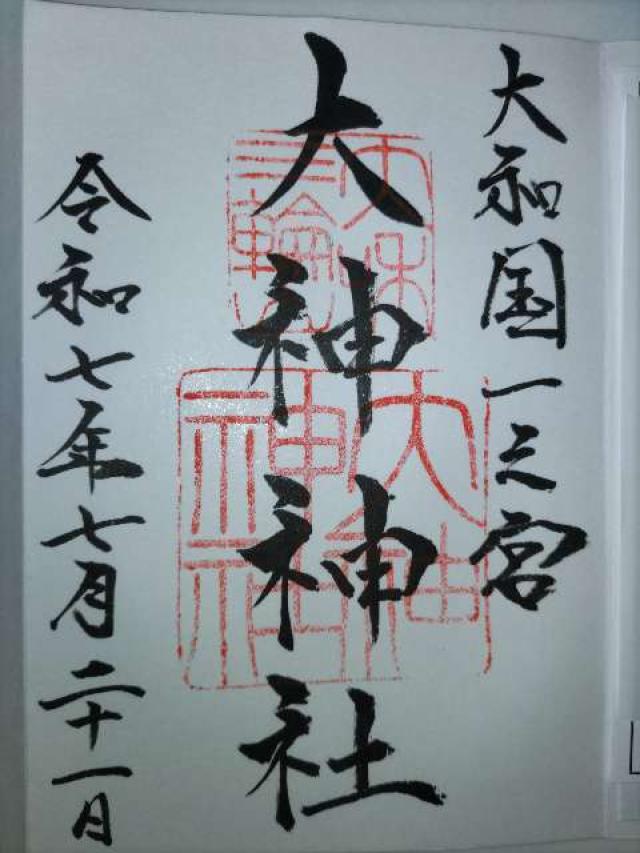 大和国一之宮
大神神社
令和七年七月二十一日
大和
三輪
大神
神社